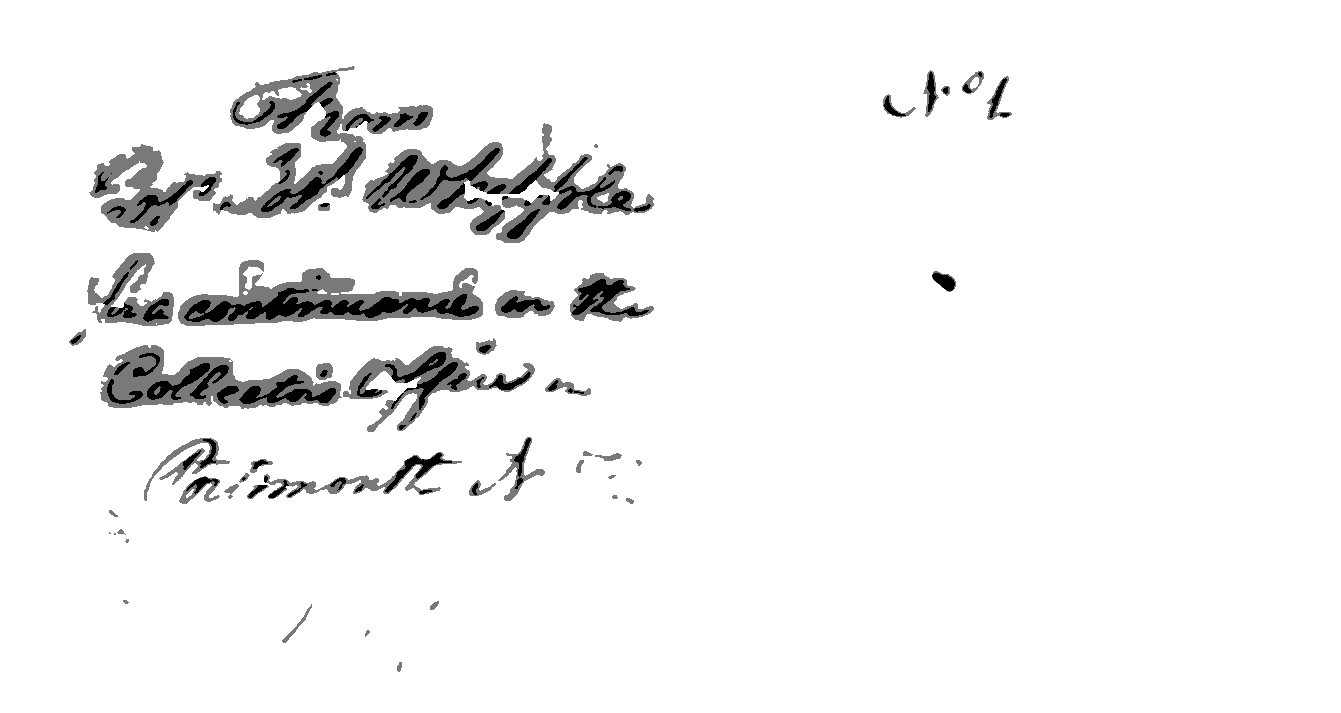 From
Whipple
for a continuance in the
Collectors Office in
Portsmouth N
No 1